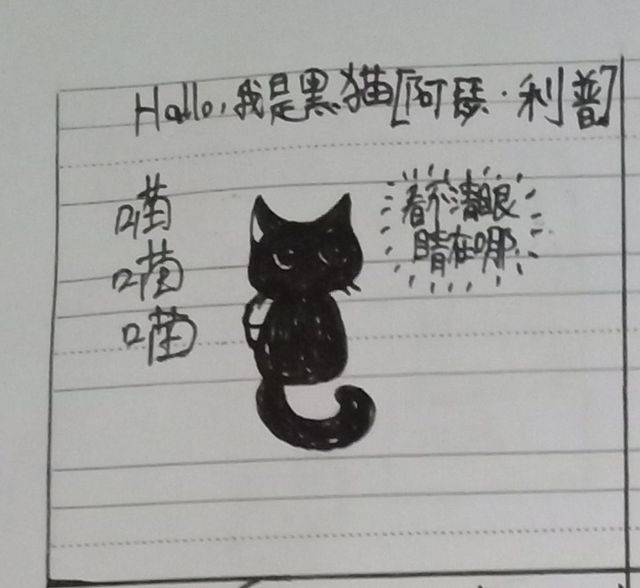 Hallo,我是黑猫[阿瑟·利普]
喵
喵
喵
看不清眼
睛在哪